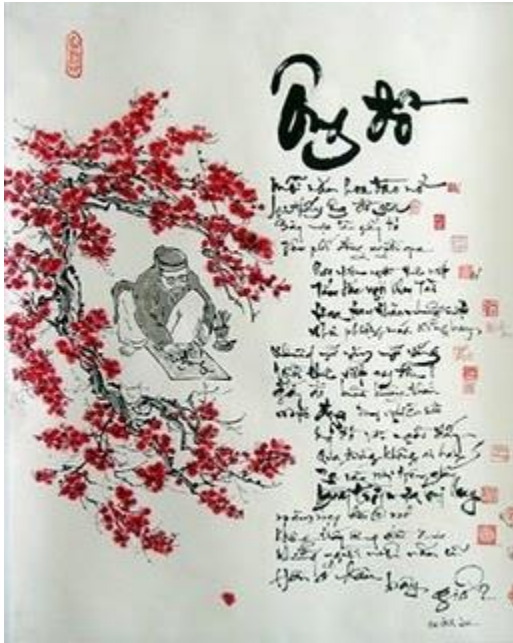 Ông đồ
Mỗi năm hoa đào nở
Lại thấy ông đồ già
Bày mực tàu giấy đỏ
phố đông người qua
Bao nhiêu người thuê viết
Tấm tắc ngợi khen Tài
Hoa tay thảo những nét
Như phượng múa rồng bay
Nhưng mỗi năm mỗi vắng
Người thuê viết nay đâu?
buồn không thắm
mực đọng trong nghiên sầu
Ông đồ vẫn ngồi đấy
Qua đường không ai hay
Lá vàng rơi trên giấy
mưa bụi bay
năm nay đào lại nở
không thấy ông đồ xưa
những người muôn năm cũ
Hồn ở đâu bây giờ?